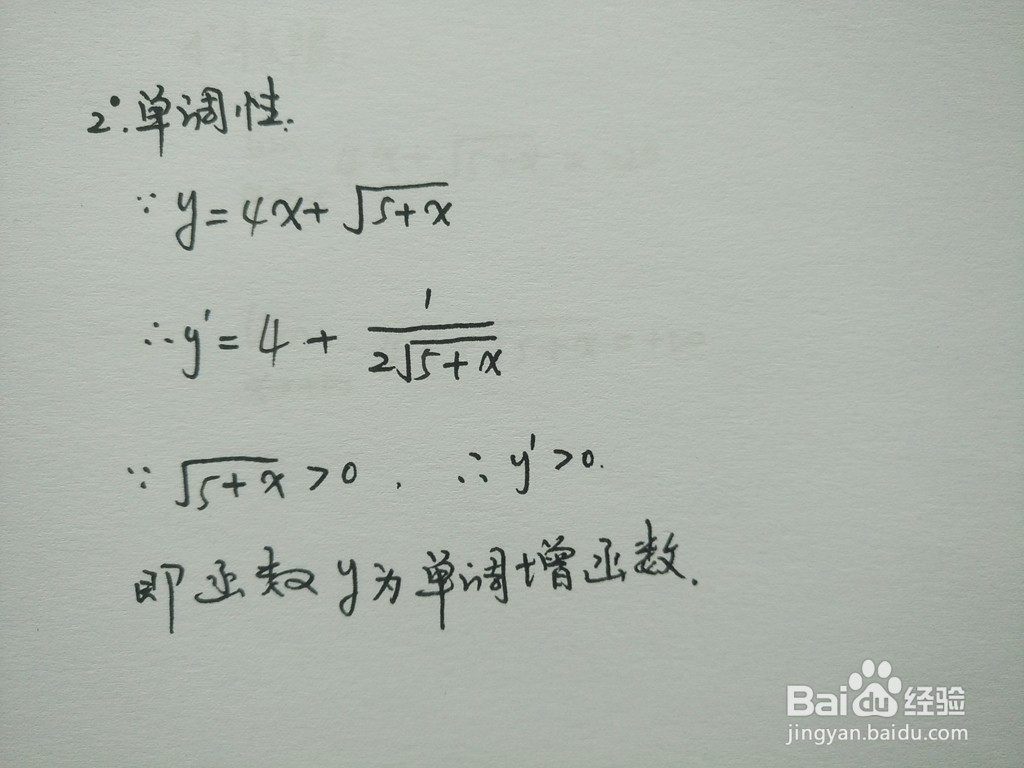 2°.单调性.
∵ y=4x+√(5+x)
∴y'=4+ 1/(2√(5+x))
∵ √(5+x)>0 . ∴y'>0.
即函数y为单调增函数.
Baidu经验
jingyan.baidu.com